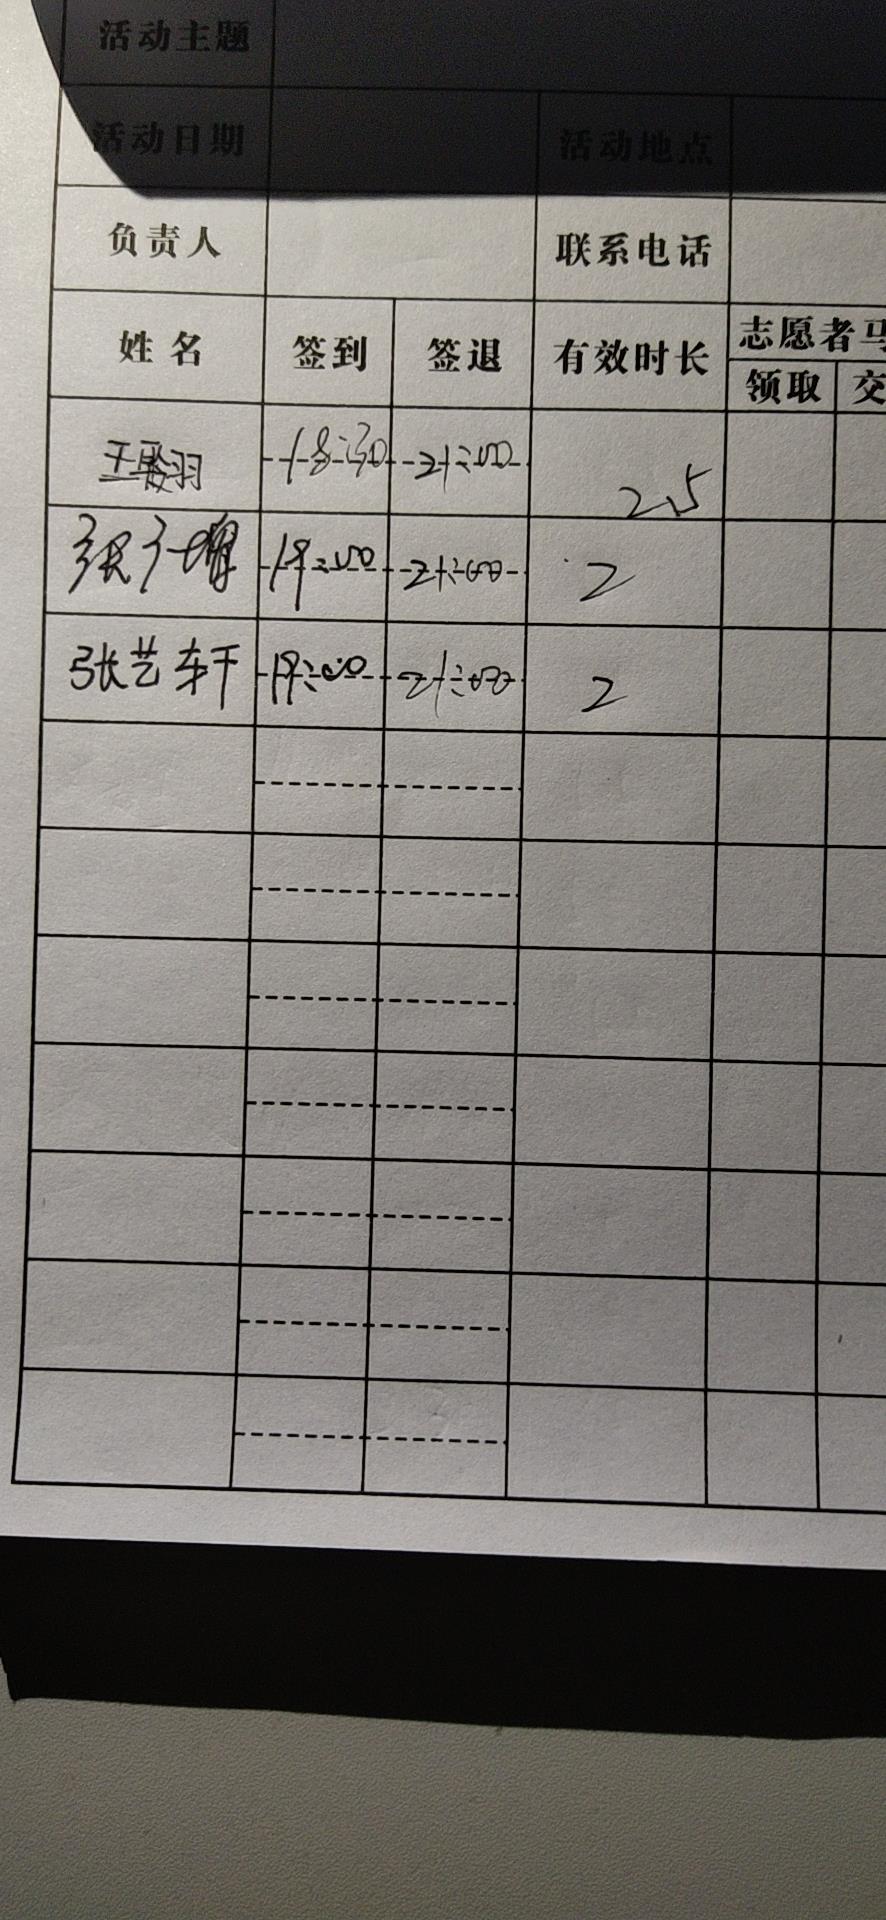 活动主题
活动日期 活动地点
负责人 联系电话
姓名 签到 签退 有效时长 志愿者马
领取 交
18:30 21:00 2.5
19:00 21:00 2
张艺轩 19:00 21:00 2